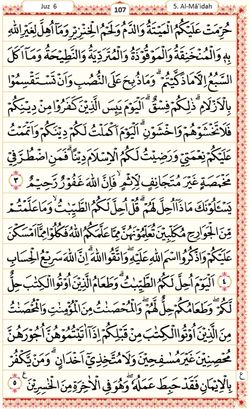 Juz 6
107
5. Al-Mâ'idah
حُرِّمَتْ عَلَيْكُمُ الْمَيْتَةُ وَالدَّمُ وَلَحْمُ الْخِنْزِيْرِ وَمَآ اُهِلَّ لِغَيْرِ اللّٰهِ
بِهٖ وَالْمُنْخَنِقَةُ وَالْمَوْقُوْذَةُ وَالْمُتَرَدِّيَةُ وَالنَّطِيْحَةُ وَمَآ اَكَلَ
السَّبُعُ اِلَّا مَا ذَكَّيْتُمْ ۗ وَمَا ذُبِحَ عَلَى النُّصُبِ وَاَنْ تَسْتَقْسِمُوْا
بِالْاَزْلَامِ ۗ ذٰلِكُمْ فِسْقٌ ۗ اَلْيَوْمَ يَىِٕسَ الَّذِيْنَ كَفَرُوْا مِنْ دِيْنِكُمْ
فَلَا تَخْشَوْهُمْ وَاخْشَوْنِ ۗ اَلْيَوْمَ اَكْمَلْتُ لَكُمْ دِيْنَكُمْ وَاَتْمَمْتُ
عَلَيْكُمْ نِعْمَتِيْ وَرَضِيْتُ لَكُمُ الْاِسْلَامَ دِيْنًا ۗ فَمَنِ اضْطُرَّ فِيْ
مَخْمَصَةٍ غَيْرَ مُتَجَانِفٍ لِّاِثْمٍ ۙ فَاِنَّ اللّٰهَ غَفُوْرٌ رَّحِيْمٌ ٣
يَسْـَٔلُوْنَكَ مَاذَآ اُحِلَّ لَهُمْ ۗ قُلْ اُحِلَّ لَكُمُ الطَّيِّبٰتُ ۙ وَمَا عَلَّمْتُمْ
مِّنَ الْجَوَارِحِ مُكَلِّبِيْنَ تُعَلِّمُوْنَهُنَّ مِمَّا عَلَّمَكُمُ اللّٰهُ فَكُلُوْا مِمَّآ اَمْسَكْنَ
عَلَيْكُمْ وَاذْكُرُوا اسْمَ اللّٰهِ عَلَيْهِ ۖ وَاتَّقُوا اللّٰهَ ۗ اِنَّ اللّٰهَ سَرِيْعُ الْحِسَابِ
٤ اَلْيَوْمَ اُحِلَّ لَكُمُ الطَّيِّبٰتُ ۗ وَطَعَامُ الَّذِيْنَ اُوْتُوا الْكِتٰبَ حِلٌّ
لَّكُمْ ۖ وَطَعَامُكُمْ حِلٌّ لَّهُمْ ۖ وَالْمُحْصَنٰتُ مِنَ الْمُؤْمِنٰتِ وَالْمُحْصَنٰتُ
مِنَ الَّذِيْنَ اُوْتُوا الْكِتٰبَ مِنْ قَبْلِكُمْ اِذَآ اٰتَيْتُمُوْهُنَّ اُجُوْرَهُنَّ
مُحْصِنِيْنَ غَيْرَ مُسٰفِحِيْنَ وَلَا مُتَّخِذِيْٓ اَخْدَانٍ ۗ وَمَنْ يَّكْفُرْ
بِالْاِيْمَانِ فَقَدْ حَبِطَ عَمَلُهٗ ۖ وَهُوَ فِى الْاٰخِرَةِ مِنَ الْخٰسِرِيْنَ ٥